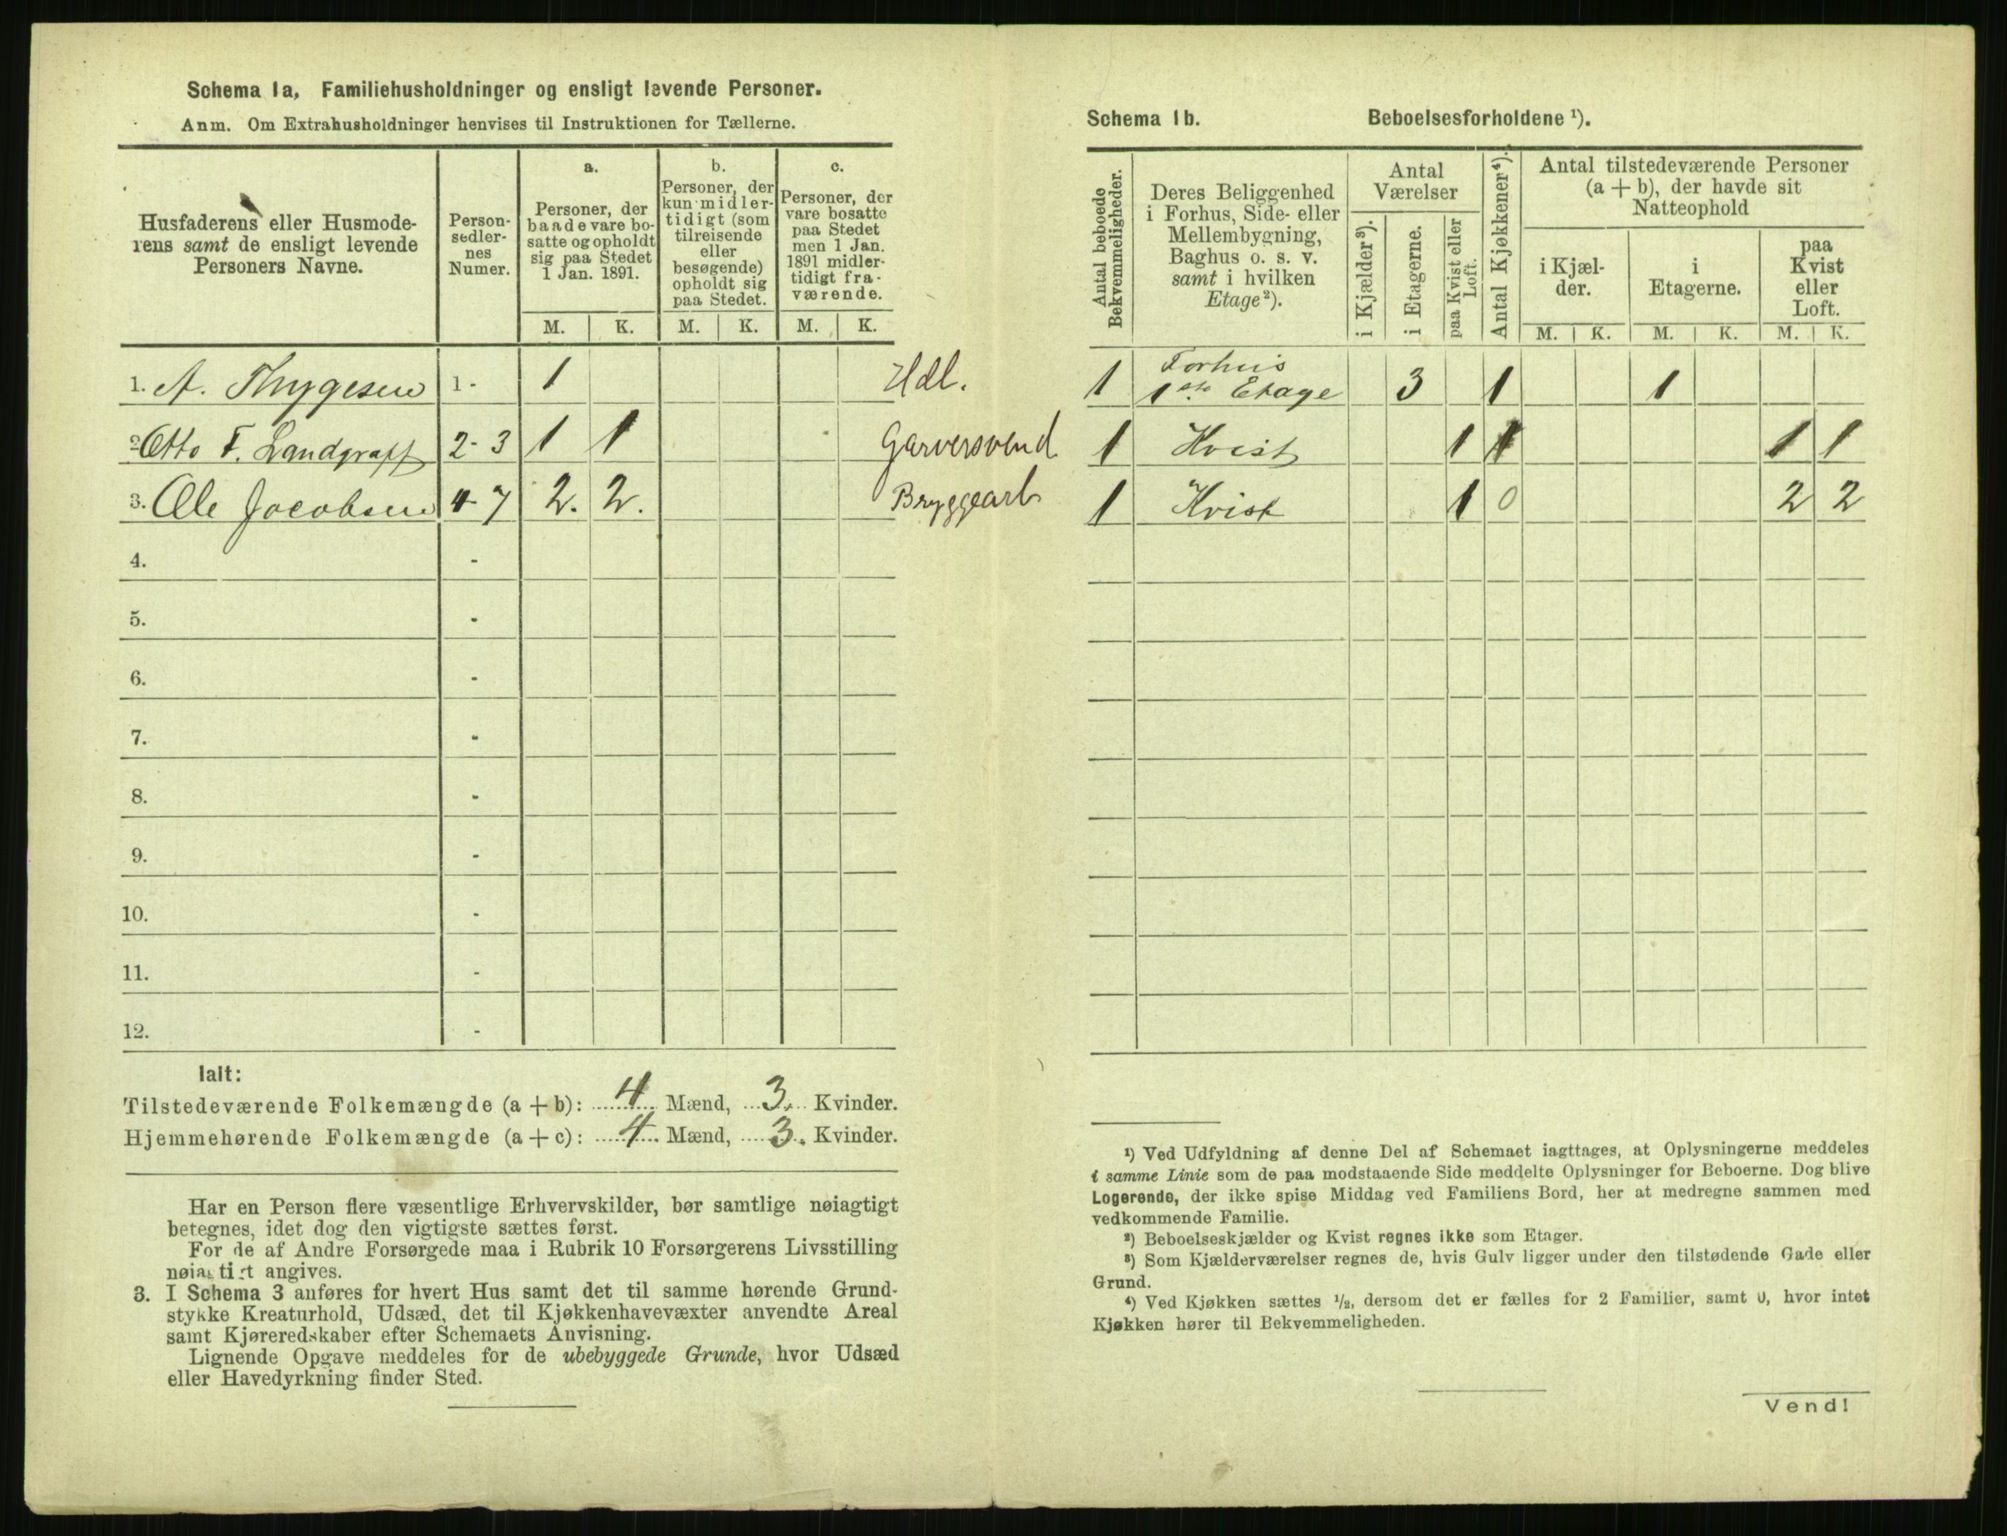 Schema 1a, Familiehusholdninger og ensligt levende Personer.
Anm. Om Extrahusholdninger henvises til Instruktionen for Tællerne.
Husfaderens eller Husmode-
rens samt de ensligt levende
Personers Navne.
Person-
sedler-
nes
Numer.
a.
Personer, der
baade vare bo-
satte og opholdt
sig paa Stedet
1 Jan. 1891.
b.
Personer, der
kun midler-
tidigt (som
tilreisende
eller
besøgende)
opholdt sig
paa Stedet.
c.
Personer, der
vare bosatte
paa Stedet
men 1 Jan.
1891 midler-
tidigt fra-
værende.
M. K. M. K. M. K.
1. A. Thygesen 1 - 1 Hdl.
2. Otto F. Landgraff 2 - 3 1 1 Garversvend
3. Ole Jacobsen 4 - 7 2. 2. Bryggearb
4. -
5. -
6. -
7. -
8. -
9. -
10. -
11. -
12. -
Ialt:
Tilstedeværende Folkemængde (a + b): 4 Mænd, 3. Kvinder.
Hjemmehørende Folkemængde (a + c): 4 Mænd, 3. Kvinder.
Har en Person flere væsentlige Erhvervskilder, bør samtlige nøiagtigt
betegnes, idet dog den vigtigste sættes først.
For de af Andre Forsørgede maa i Rubrik 10 Forsørgerens Livsstilling
nøiagtigt angives.
3. I Schema 3 anføres for hvert Hus samt det til samme hørende Grund-
stykke Kreaturhold, Udsæd, det til Kjøkkenhavevæxter anvendte Areal
samt Kjøreredskaber efter Schemaets Anvisning.
Lignende Opgave meddeles for de ubebyggede Grunde, hvor Udsæd
eller Havedyrkning finder Sted.
Schema 1b. Beboelsesforholdene ¹).
Antal beboede
Bekvemmeligheder.
Deres Beliggenhed
i Forhus, Side- eller
Mellembygning,
Baghus o. s. v.
samt i hvilken
Etage²).
Antal
Værelser
i Kjælder³).
i Etagerne.
paa Kvist eller
Loft.
Antal Kjøkkener⁴).
Antal tilstedeværende Personer
(a + b), der havde sit
Natteophold
i Kjæl-
der.
i
Etagerne.
paa
Kvist
eller
Loft.
M. K. M. K. M. K.
1 Forhus
1ste Etage 3 1 1
1 Kvist 1 1 1 1
1 Kvist 1 0 2 2
¹) Ved Udfyldning af denne Del af Schemaet iagttages, at Oplysningerne meddeles
i samme Linie som de paa modstaaende Side meddelte Oplysninger for Beboerne. Dog blive
Logerende, der ikke spise Middag ved Familiens Bord, her at medregne sammen med
vedkommende Familie.
²) Beboelseskjælder og Kvist regnes ikke som Etager.
³) Som Kjælderværelser regnes de, hvis Gulv ligger under den tilstødende Gade eller
Grund.
⁴) Ved Kjøkken sættes ½, dersom det er fælles for 2 Familier, samt 0, hvor intet
Kjøkken hører til Bekvemmeligheden.
Vend!